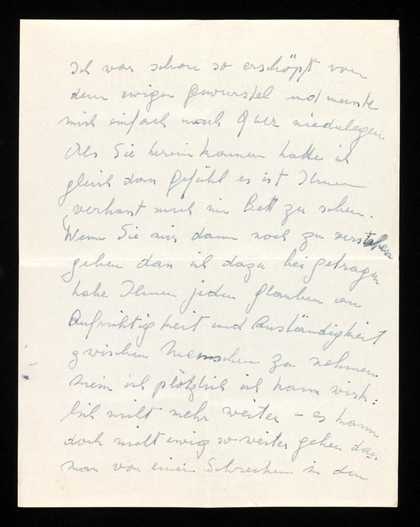 Ich war schon so erschöpft von
dem ewigen gewurstel und musste
mich einfach nach 9 Uhr niederlegen
Als Sie hereinkamen hatte ich
gleich das Gefühl es ist Ihnen
verhasst mich im Bett zu sehen.
Wenn Sie mir dann noch zu verstehen
geben dass ich dazu beigetragen
habe Ihnen jeden Glauben an
Aufrichtigkeit und Anständigkeit
zwischen Menschen zu nehmen
ich plötzlich ich kann wirk:
lich nicht mehr weiter – es kann
doch nicht ewig so weiter gehen dass
man von einem Schrecken in den